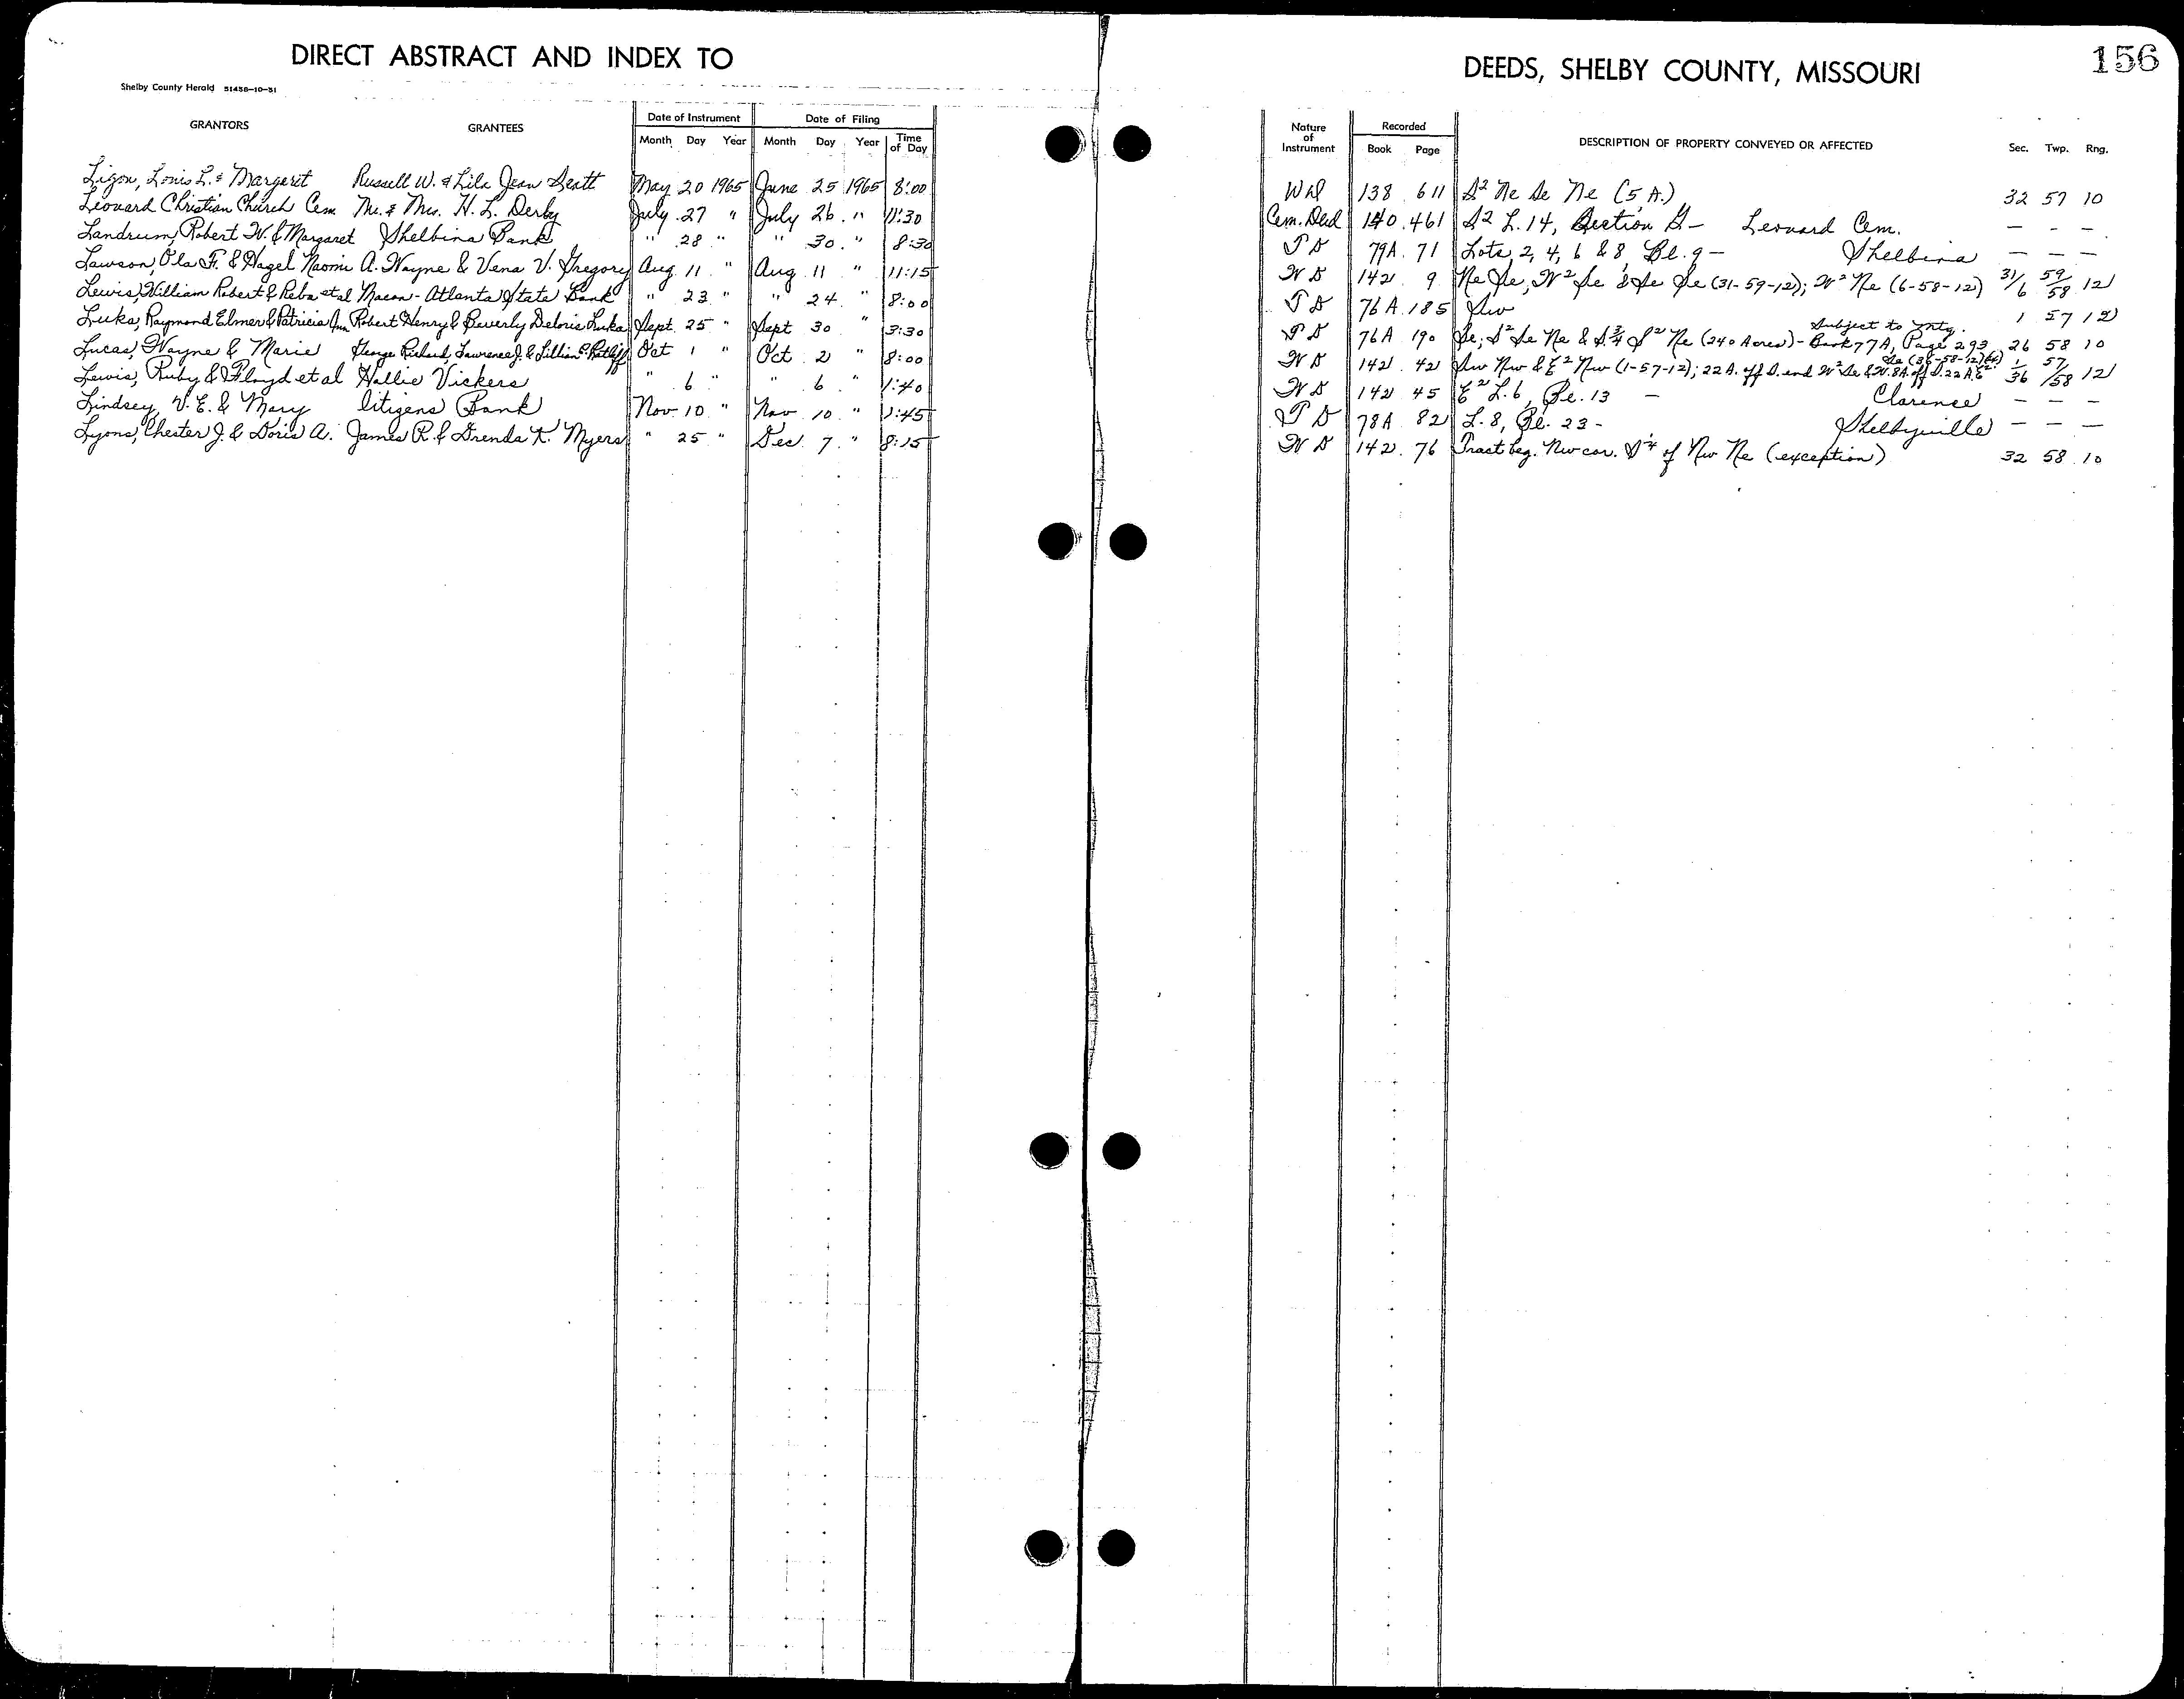 DIRECT ABSTRACT AND INDEX TO DEEDS, SHELBY COUNTY, MISSOURI 156
Shelby County Herald 51458-10-51
GRANTORS GRANTEES Date of Instrument Date of Filing Nature of Instrument Recorded DESCRIPTION OF PROPERTY CONVEYED OR AFFECTED Sec. Twp. Rng.
Month Day Year Month Day Year Time of Day Book Page
Ligon, Louis L. & Margaret Russell W. & Lila Jean Scott May 20 1965 June 25 1965 8:00 WD 138 611 S2 Ne Se Ne (5 A.) 32 57 10
Leonard Christian Church Cem Mr. & Mrs. H. L. Derby July 27 " July 26 " 11:30 Cem. Deed 140 461 S2 L. 14, Section G - Leonard Cem. - - -
Landrum, Robert W. & Margaret Shelbina Bank " 28 " " 30 " 8:30 TD 79A 71 Lots, 2, 4, 6 & 8, Bl. 9 - Shelbina - - -
Lawson, Ola F. & Hazel Naomi A. Wayne & Vena V. Gregory Aug 11 " Aug 11 " 11:15 WD 142 9 Ne Se, W2 Se & Se Se (31-59-12); W2 Ne (6-58-12) 31/6 59/58 12
Lewis, William Robert & Reba et al Macon-Atlanta State Bank " 23 " " 24 " 8:00 TD 76A 185 Sw 1 57 12
Luka, Raymond Elmer & Patricia Ann Robert Henry & Beverly Deloris Luka Sept 25 " Sept 30 " 3:30 TD 76A 190 Se; S2 Se Ne & S3/4 S2 Ne (240 Acres) - Subject to Mtg. Book 77A, Page 293 26 58 10
Lucas, Wayne & Marie George Richard, Lawrence J. & Lillian E. Ratliff Oct 1 " Oct 2 " 8:00 WD 142 42 Sw Nw & E2 Nw (1-57-12); 22 A. off S. end W2 Se & W. 8A. off S. 22 A. E2 Se (36-58-12) 1/36 57/58 12
Lewis, Ruby & Floyd et al Hallie Vickers " 6 " " 6 " 1:40 WD 142 45 E2 L. 6, Bl. 13 - Clarence - - -
Lindsey, V. E. & Mary Citizens Bank Nov 10 " Nov 10 " 1:45 TD 78A 82 L. 8, Bl. 23 - Shelbyville - - -
Lyons, Chester J. & Doris A. James R. & Brenda K. Myers " 25 " Dec 7 " 8:15 WD 142 76 Tract beg. Nw cor. of Nw Ne (exception) 32 58 10